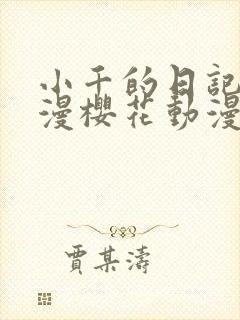 小千的日記
漫櫻花動漫
賈某濤